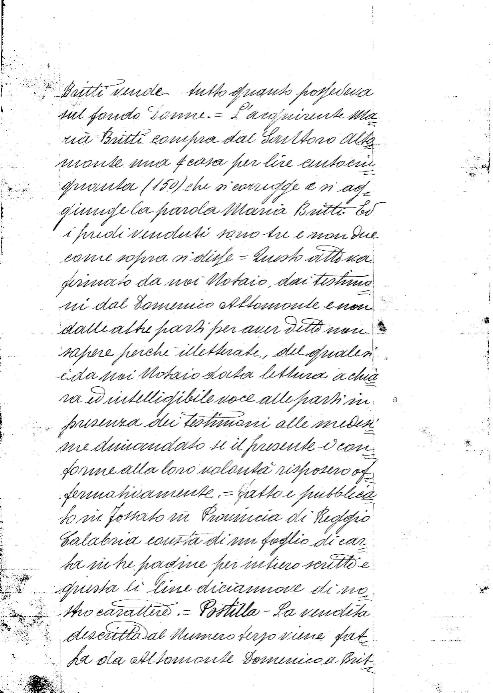 Britti vende tutto quanto possedeva
sul fondo Danne = L'acquirente Ma=
ria Britti compra dal Venditore Alta
monte una casa per lire centocin
quanta (150) che si corregge e si ag=
giunge la parola Maria Britti - Ed
i predi venduti sono tre e non due
come sopra si disse = Questo atto va
firmato da noi Notaio, dai testimo=
ni dal Domenico Altomonte e non
dalle altre parti per aver detto non
sapere perchè illetterate, del quale si
è da noi Notaio data lettura a chia=
ra ed intelligibile voce alle parti in
presenza dei testimoni alle medesi=
me dimandato se il presente è con=
forme alla loro volontà risposero af=
fermativamente. = Fatto e pubblica
to in Fossato in Provincia di Reggio
Calabria consta di un foglio di car=
ta in tre pagine per intiero scritte e
questa li linee diciannove di no=
stro carattere. = Postilla - La vendita
descritta al Numero terzo viene fat=
ta da Altomonte Domenico a Brit=